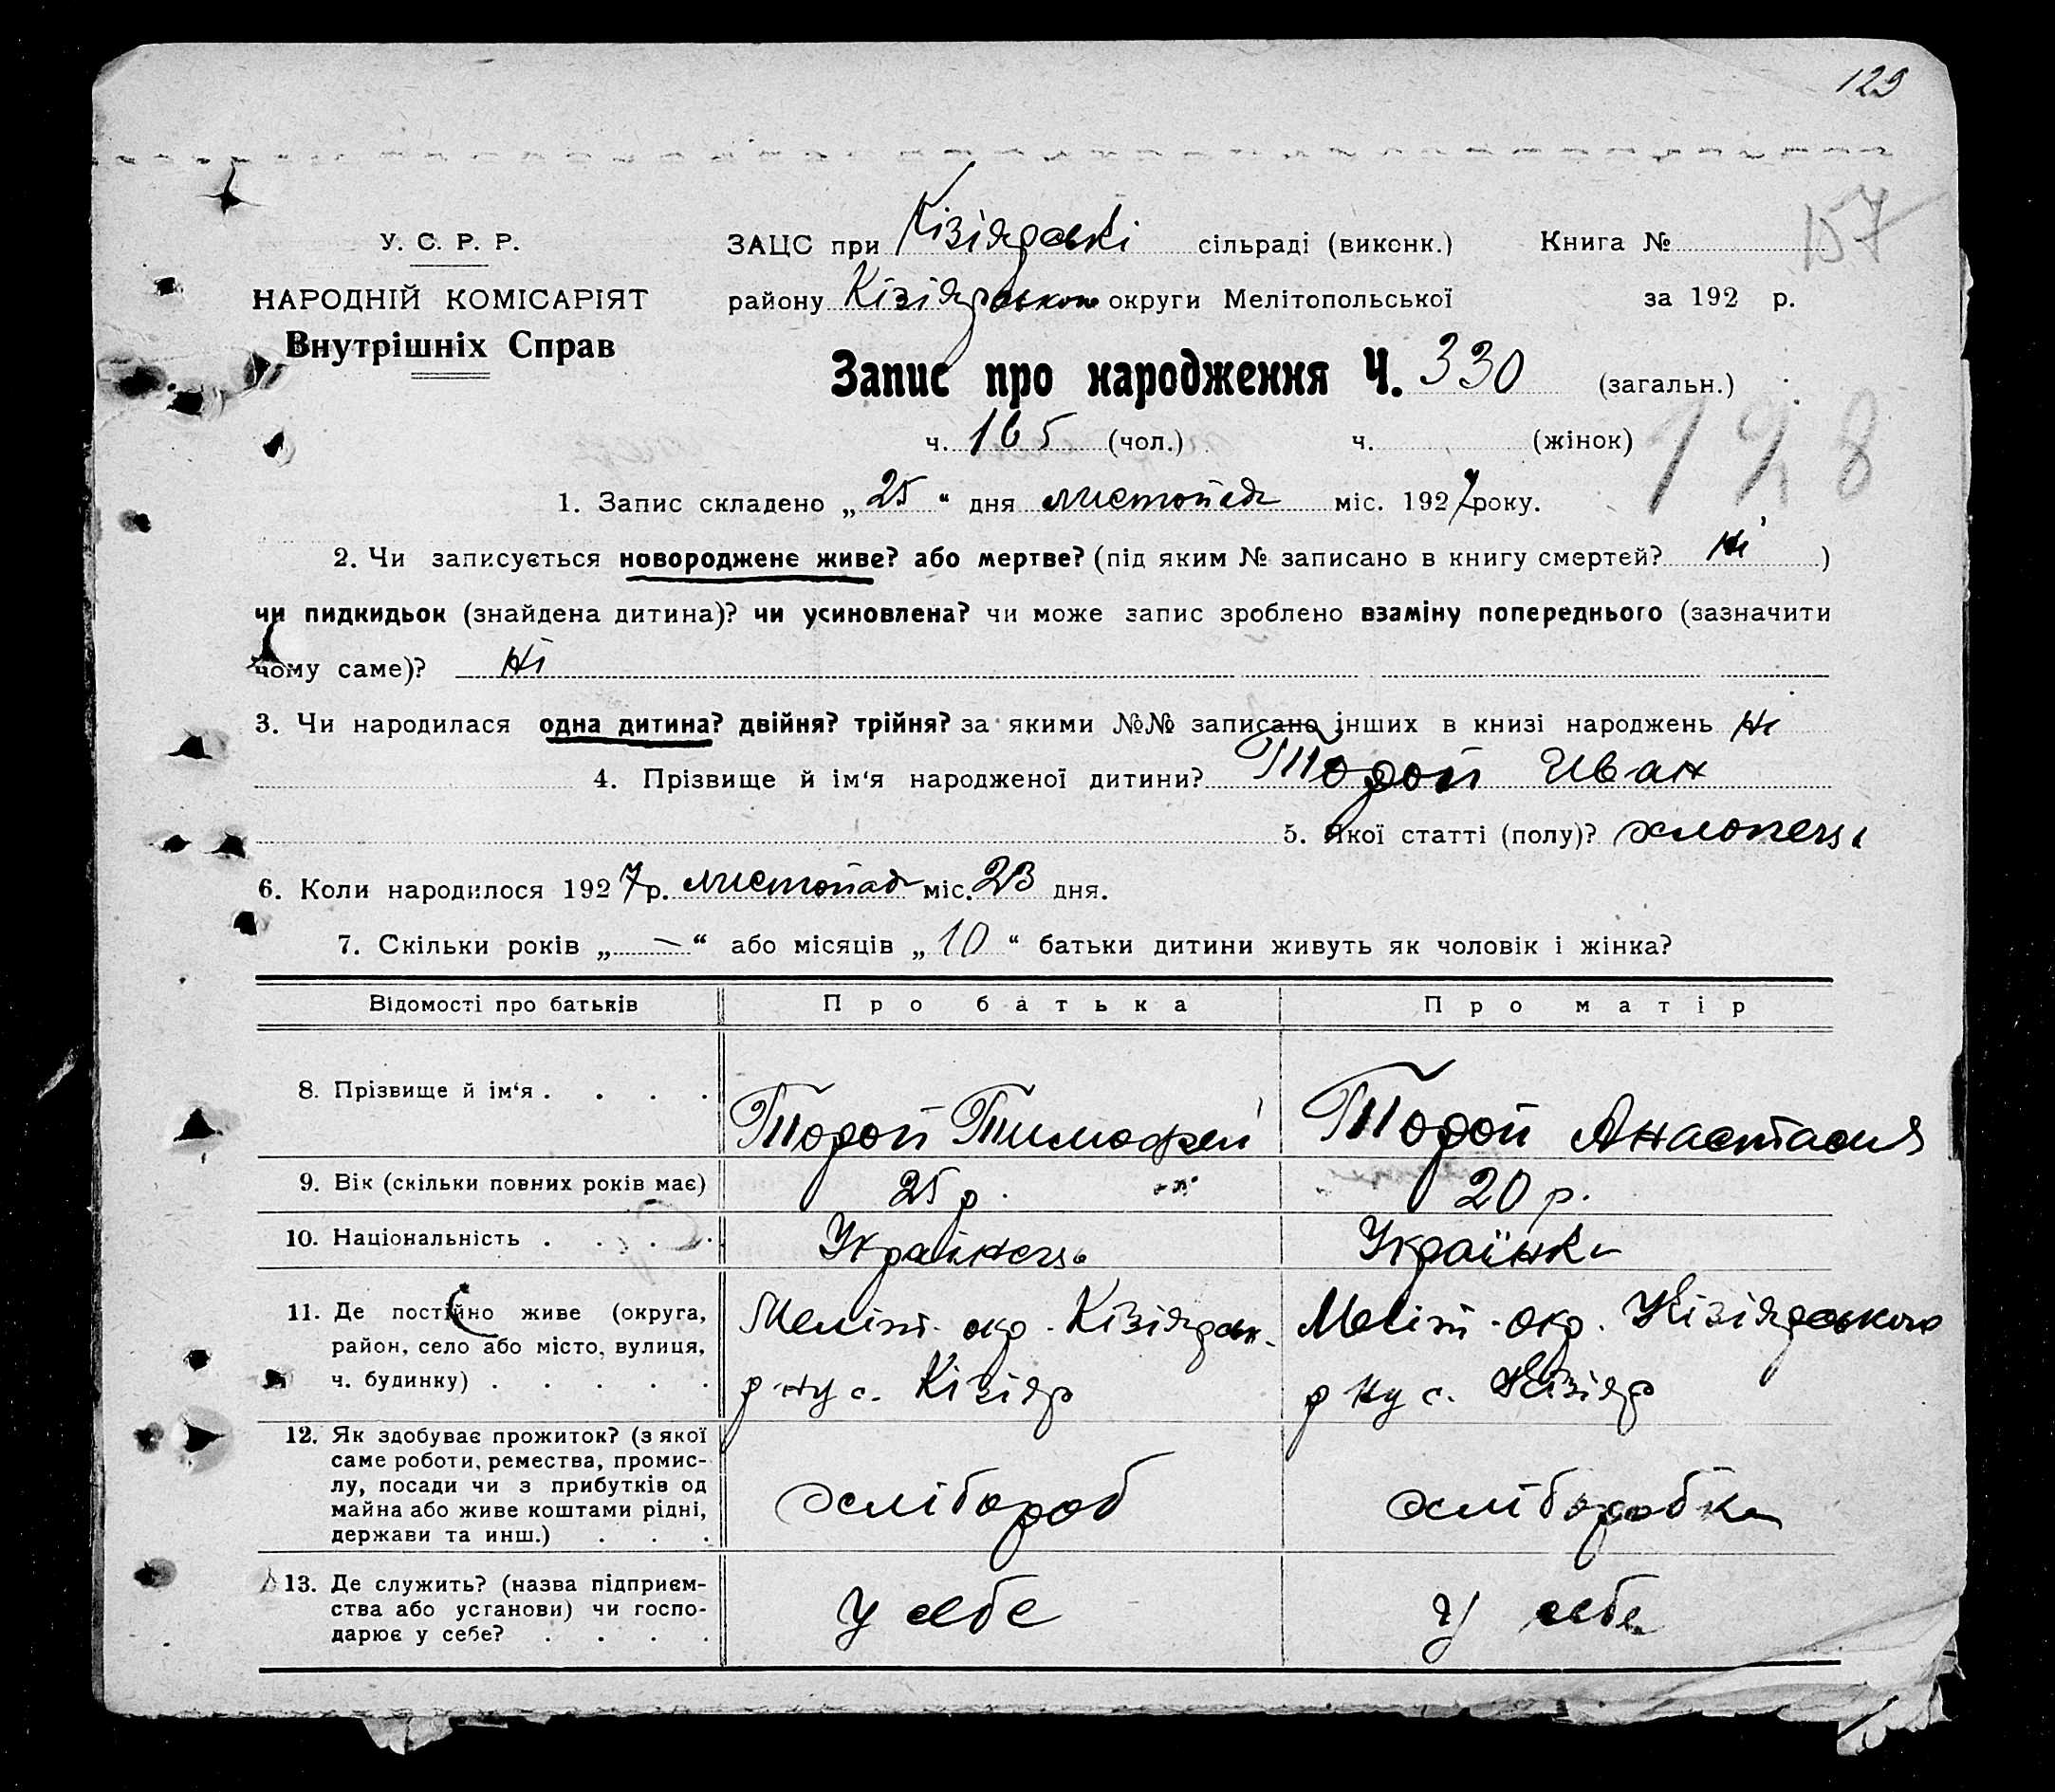 129
У. С. Р. Р. ЗАЦС при Кізіярській сільраді (виконк.) Книга № 157
НАРОДНІЙ КОМІСАРІЯТ району Кізіярського округи Мелітопольської за 192 р.
Внутрішніх Справ
Запис про народження Ч. 330 (загальн.)
128
ч. 165 (чол.) ч. (жінок)
1. Запис складено „ 25 “ дня листопад міс. 1927 року.
2. Чи записується новороджене живе? або мертве? (під яким № записано в книгу смертей? Ні )
чи пидкидьок (знайдена дитина)? чи усиновлена? чи може запис зроблено взаміну попереднього (зазначити
чому саме)? Ні
3. Чи народилася одна дитина? двійня? трійня? за якими №№ записано інших в книзі народжень Ні
4. Прізвище й ім‘я народженої дитини? Тодой Иван
5. Якої статті (полу)? хлопець
6. Коли народилося 1927 р. листопад міс. 23 дня.
7. Скільки років „ — “ або місяців „ 10 “ батьки дитини живуть як чоловік і жінка?
Відомості про батьків Про батька Про матір
8. Прізвище й ім‘я . . . . Тодой Тимофей Тодой Анастасия
9. Вік (скільки повних років має) 25 р. 20 р.
10. Національність . . . . Українець Українка
11. Де постійно живе (округа, Меліт. окр. Кізіярськ. Меліт. окр. Кізіярського
район, село або місто, вулиця,
ч. будинку) . . . . . р ну с. Кізіяр р ну с. Кізіяр
12. Як здобуває прожиток? (з якої
саме роботи, ремества, промис-
лу, посади чи з прибутків од
майна або живе коштами рідні, хлібороб хліборобка
держави та инш.) . . .
13. Де служить? (назва підприєм-
ства або установи) чи госпо- у себе у себе
дарює у себе? . . . .